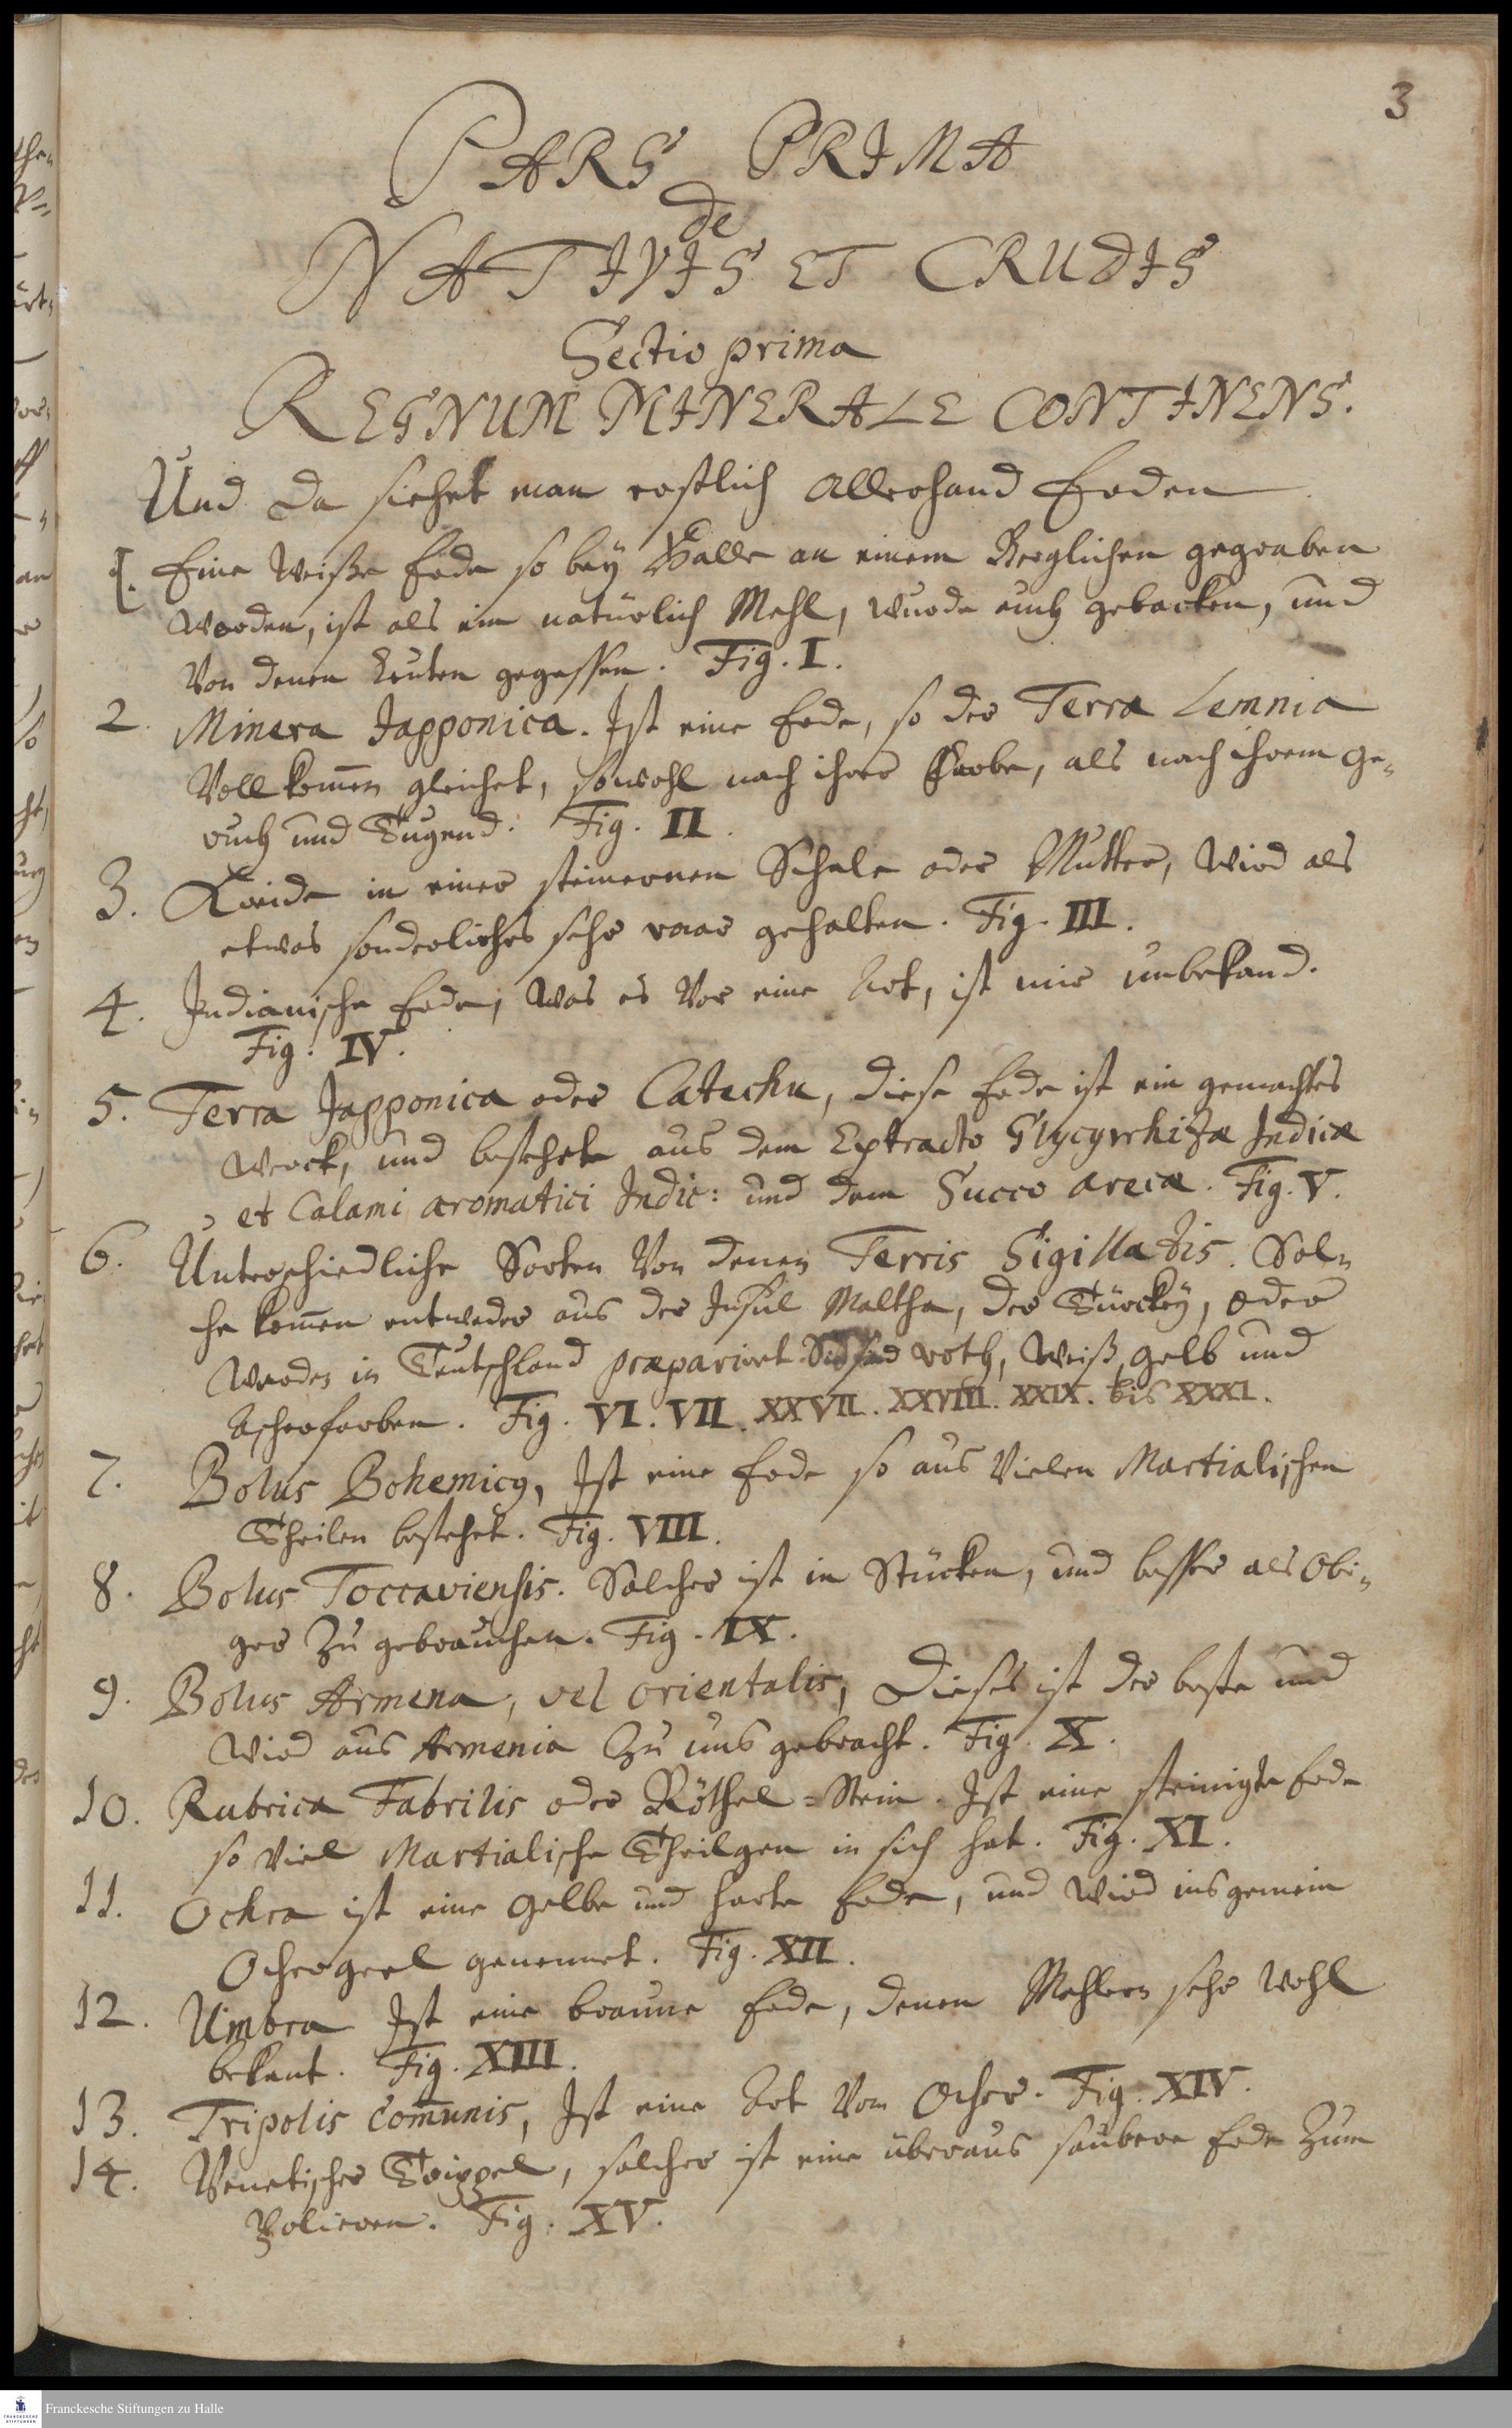 3
PARS PRIMA
de
NATIVIS ET CRUDIS
Sectio prima
REGNUM MINERALE CONTINENS.
Und da siehet man erstlich allerhand Erden
1. Eine weiße Erde so bey Halle an einem Berglichen gegraben
worden, ist als ein natürlich Mehl, wurde auch gebacken, und
von denen Leuten gegessen. Fig. I.
2. Minera Japponica. Ist eine Erde, so der Terra Lemnia
vollkom̅en gleichet, sowohl nach ihrer Farbe, als nach ihrem Ge-
ruch und Tugend. Fig. II.
3. Kreide in einer steinernen Schale oder Mutter, wird als
etwas sonderliches sehr raar gehalten. Fig. III.
4. Indianische Erde, was es vor eine Art, ist mir unbekand.
Fig. IV.
5. Terra Japponica oder Catechu, diese Erde ist ein gemachtes
Werck, und bestehet aus dem Extracto Glycyrrhizæ Indicæ
et Calami aromatici Indic: und dem Succo arecæ. Fig. V.
6. Unterschiedliche Sorten von denen Terris Sigillatis. Sol-
che kom̅en entweder aus der Insul Maltha, der Türckey, oder
werden in Teutschland præpariret. Sie sind roth, weiß, gelb und
Ascherfarben. Fig. VI. VII. XXVII. XXVIII. XXIX. bis XXXI.
7. Bolus Bohemicg, Ist eine Erde so aus vielen Martialischen
Theilen bestehet. Fig. VIII.
8. Bolus Toccaviensis. Solcher ist in Stücken, und besser als obi-
ger zu gebrauchen. Fig. IX.
9. Bolus Armena, vel orientalis, Dieses ist der beste und
wird aus Armenia zu uns gebracht. Fig. X.
10. Rubrica Fabrilis oder Röthel-Stein. Ist eine steinigte Erde
so viel Martialische Theilgen in sich hat. Fig. XI.
11. Ochra ist eine gelbe und harte Erde, und wird insgemein
Ochergeel genennet. Fig. XII.
12. Umbra Ist eine braune Erde, denen Mahlern sehr wohl
bekant. Fig. XIII.
13. Tripolis com̅unis, Ist eine Art von Ocher. Fig. XIV.
14. Venetischer Trippel, solcher ist eine überaus saubere Erde zum
Polieren. Fig. XV.
Franckesche Stiftungen zu Halle